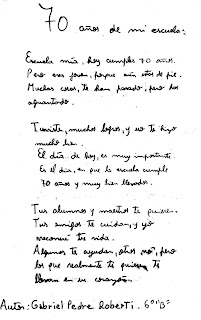 70 años de mi escuela:
Escuela mía, hoy cumples 70 años.
Pero eres joven, porque aún estás de pie.
Muchas cosas, te han pasado, pero has
aguantado.
Tuviste, muchos logros, y no te hizo
mucho
El día de hoy, es muy importante
Es el día, en que la escuela cumple
70 años y muy bien llevados.
Tus alumnos y maestros te quieren.
Tus amigos te cuidan, y yo
tu vida.
Algunos te ayudan, otros no, pero
los que realmente te quieren te
llevan en su corazón.
Autor: Gabriel Pedre Roberti. 6º "B"